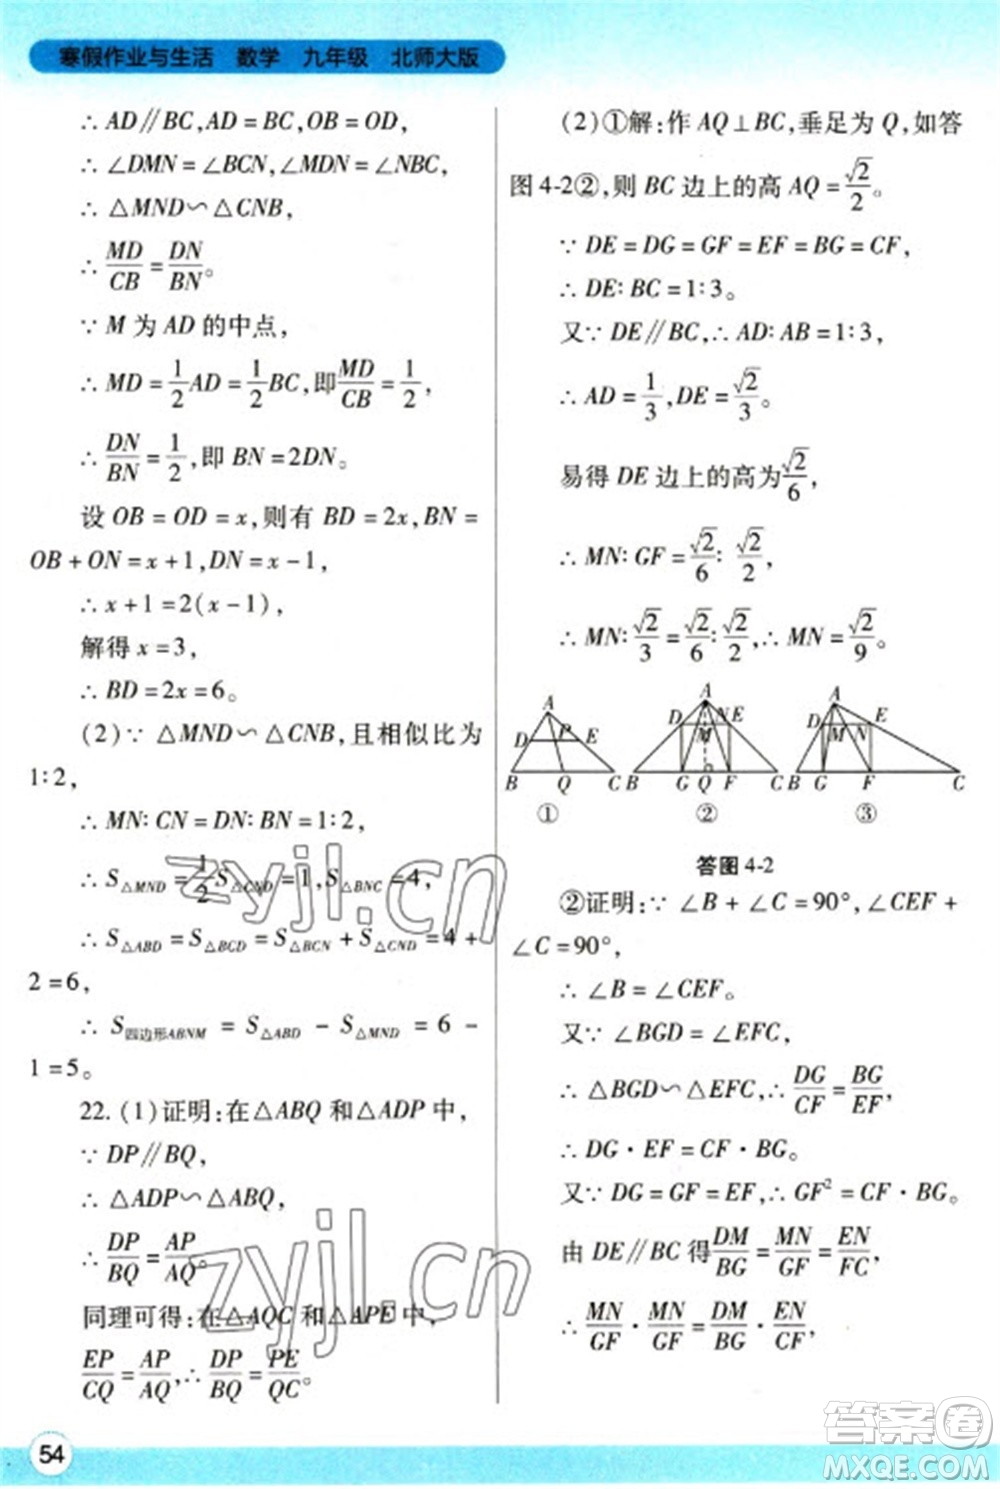 寒假作业与生活 数学 九年级 北师大版
∴AD∥BC,AD=BC,OB=OD,
∴∠DMN=∠BCN,∠MDN=∠NBC,
∴△MND∽△CNB,
∴MD/CB=DN/BN。
∵M为AD的中点,
∴MD=1/2AD=1/2BC,即MD/CB=1/2,
∴DN/BN=1/2,即BN=2DN。
设OB=OD=x,则有BD=2x,BN=
OB+ON=x+1,DN=x-1,
∴x+1=2(x-1),
解得x=3,
∴BD=2x=6。
(2)∵△MND∽△CNB,且相似比为
1∶2,
∴MN∶CN=DN∶BN=1∶2,
∴S△MND=1/2S△CND=1,S△BNC=4,
∴S△ABD=S△BCD=S△BCN+S△CND=4+
2=6,
∴S四边形ABNM=S△ABD-S△MND=6-
1=5。
22.(1)证明:在△ABQ和△ADP中,
∵DP∥BQ,
∴△ADP∽△ABQ,
∴DP/BQ=AP/AQ。
同理可得:在△AQC和△APE中,
EP/CQ=AP/AQ,∴DP/BQ=PE/QC。
(2)①解:作AQ⊥BC,垂足为Q,如答
图4-2②,则BC边上的高AQ=√2/2。
∵DE=DG=GF=EF=BG=CF,
∴DE∶BC=1∶3。
又∵DE∥BC,∴AD∶AB=1∶3,
∴AD=1/3,DE=√2/3。
易得DE边上的高为√2/6,
∴MN∶GF=√2/6∶√2/2,
∴MN∶√2/3=√2/6∶√2/2,∴MN=√2/9。
A D P E B Q C ①
A D N E M B G Q F C ②
A D M N E B G F C ③
答图4-2
②证明:∵∠B+∠C=90°,∠CEF+
∠C=90°,
∴∠B=∠CEF。
又∵∠BGD=∠EFC,
∴△BGD∽△EFC,∴DG/CF=BG/EF,
∴DG·EF=CF·BG。
又∵DG=GF=EF,∴GF²=CF·BG。
由DE∥BC得DM/BG=MN/GF=EN/FC,
∴MN/GF·MN/GF=DM/BG·EN/CF,
54
zyjl.cn
zyjl.cn
答案卷
MXQE.COM